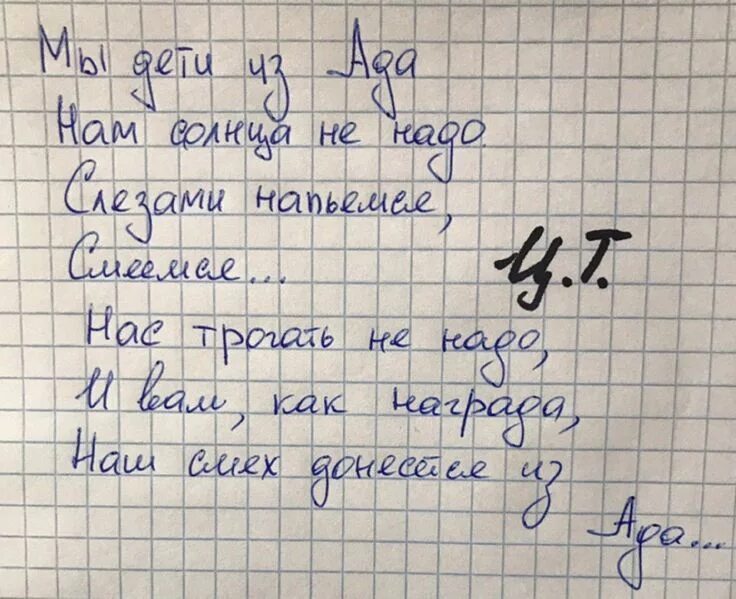 Мы дети из Ада
Нам солнца не надо.
Слезами напьемся,
Смеемся...
Ц.Т.
Нас трогать не надо,
И вам, как награда,
Наш смех донесётся из
Ада...